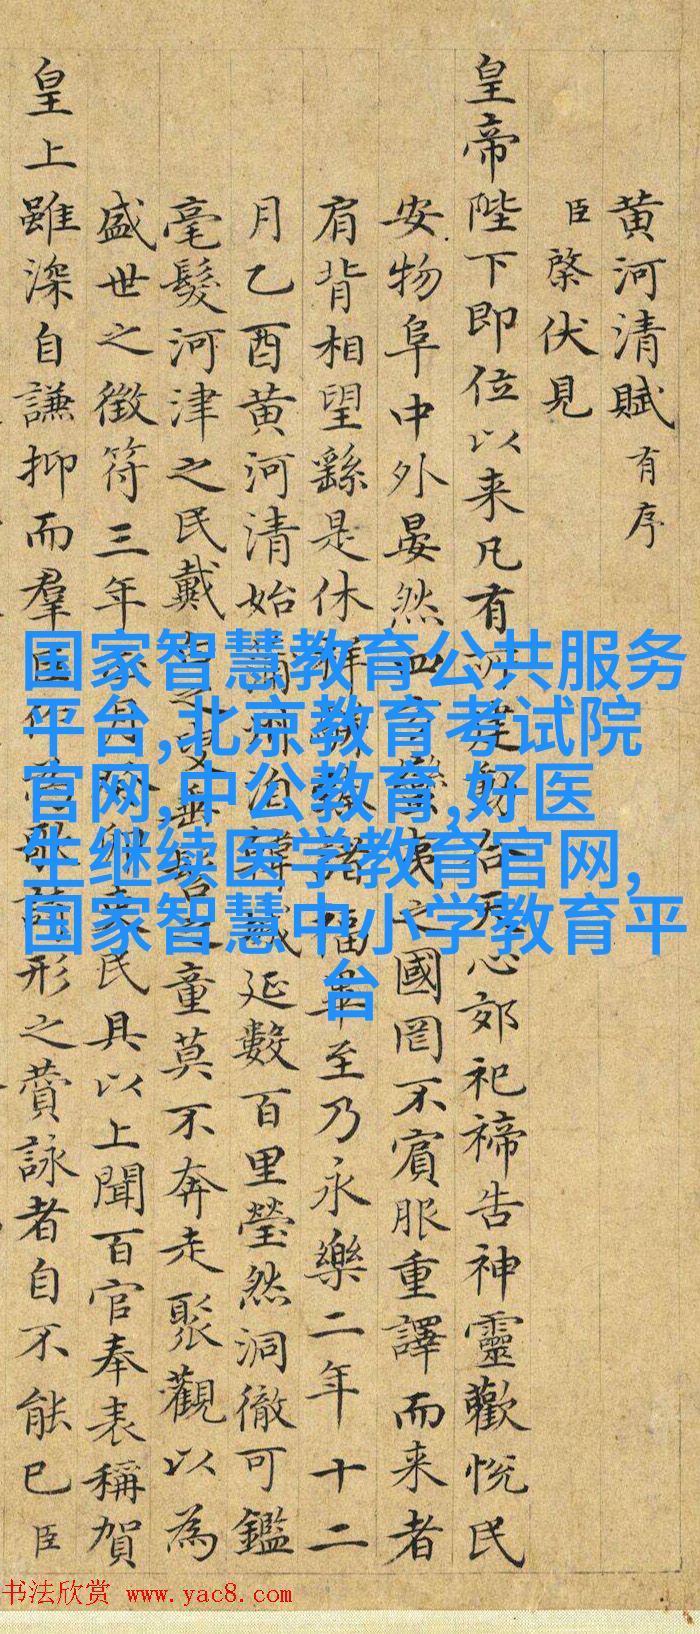 黄河清賦 有序
臣棨伏見
皇帝陛下即位以来凡有
心郊祀禘告神靈歡悦民
安物阜中外晏然四
之國罔不賓服重譯而来者
肩背相望繇是休
至乃永樂二年十二
月乙酉黄河清始
延數百里瑩然洞徹可鑑
毫髮河津之民戴
之童莫不奔走聚觀以為
盛世之徵符三年
民具以上聞百官奉表稱賀
皇上雖深自謙抑而羣臣
形之賛詠者自不能已臣
国家智慧教育公共服务
平台,北京教育考试院
官网,中公教育,好医
生继续医学教育官网,
国家智慧中小学教育平
台
书法欣赏 www.yac8.com